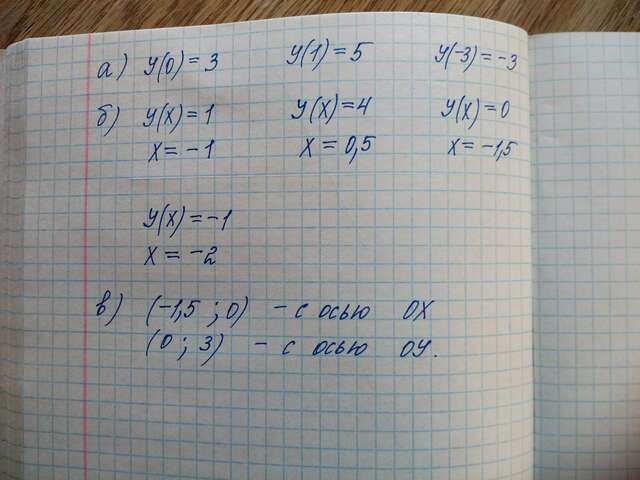 а) y(0) = 3 y(1) = 5 y(-3) = -3
б) y(x) = 1 y(x) = 4 y(x) = 0
x = -1 x = 0,5 x = -1,5
y(x) = -1
x = -2
в) (-1,5 ; 0) - с осью ОХ
(0 ; 3) - с осью ОУ.